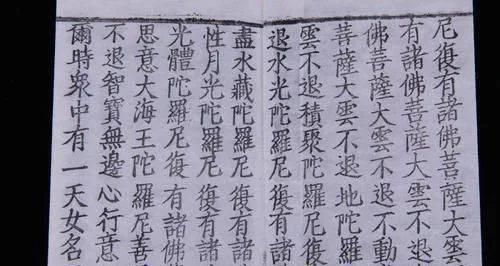 尼復有諸佛菩薩大雲
有諸佛菩薩大雲不退
佛菩薩大雲不退不動
菩薩大雲不退地陀羅
雲不退積聚陀羅尼復
退水光陀羅尼復有諸
盡水藏陀羅尼復有諸
性月光陀羅尼復有諸
光體陀羅尼復有諸佛
思意大海王陀羅尼善
不退智寶無邊心行意
爾時眾中有一天女名